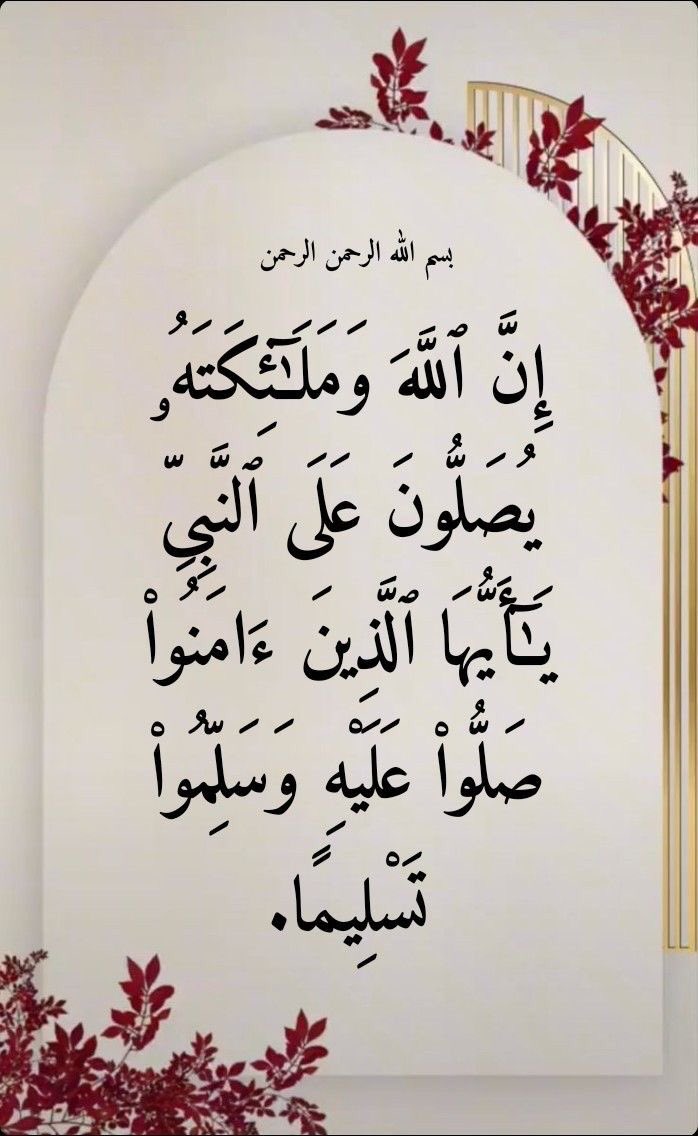 بسم الله الرحمن الرحمن
إِنَّ ٱللَّهَ وَمَلَـٰٓئِكَتَهُۥ
يُصَلُّونَ عَلَى ٱلنَّبِىِّ
يَـٰٓأَيُّهَا ٱلَّذِينَ ءَامَنُوا۟
صَلُّوا۟ عَلَيْهِ وَسَلِّمُوا۟
تَسْلِيمًا.